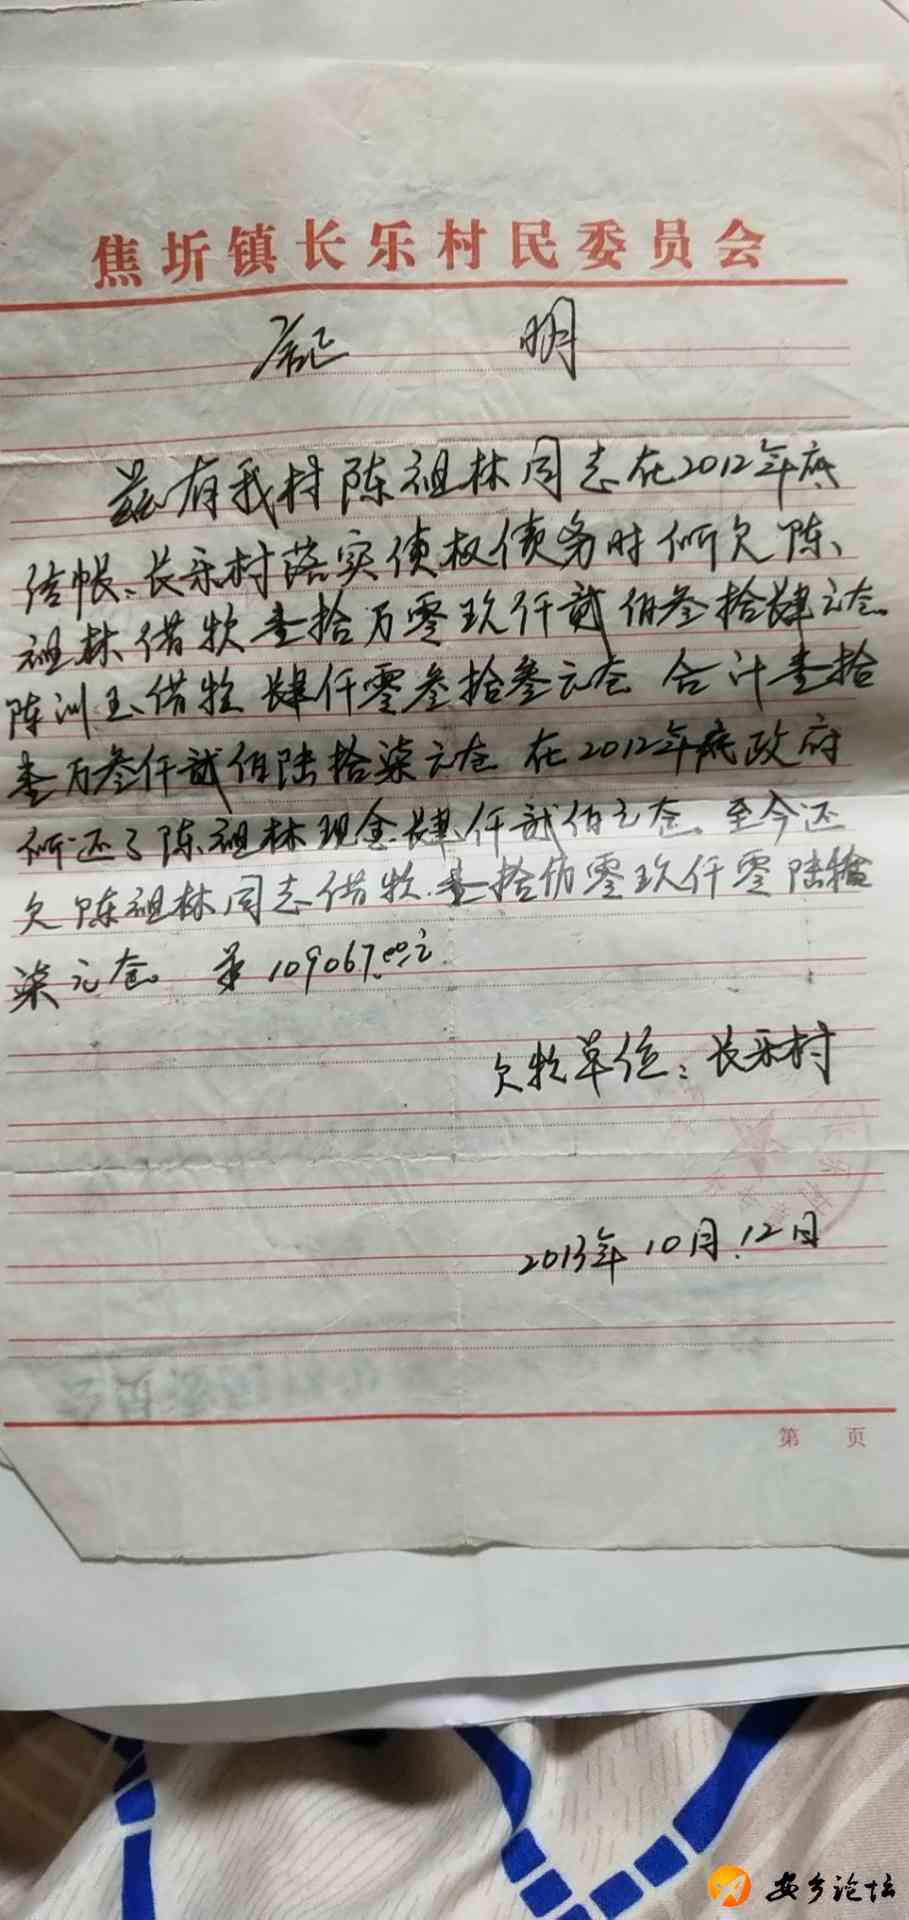 焦圻镇长乐村民委员会
证 明
兹有我村陈祖林同志在2012年底
结帐、长乐村落实债权债务时所欠陈、
祖林借款壹拾万零玖仟贰佰叁拾肆元仓
陈训玉借款肆仟零叁拾叁元仓 合计壹拾
壹万叁仟贰佰陆拾柒元仓 在2012年底政府
所还了陈祖林现金肆仟贰佰元仓、至今还
欠陈祖林同志借款壹拾万零玖仟零陆拾
柒元仓。 109067.00元
欠款单位:长乐村
2013年10月12日
第 页
安乡论坛